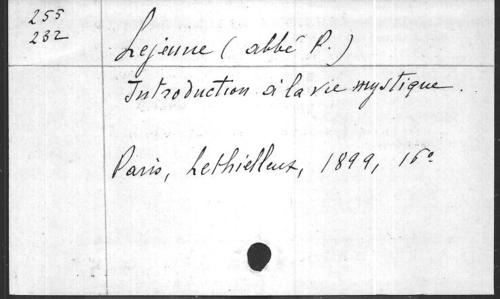 255
232
Lejeune (abbé P.)
Introduction à la vie mystique.
Paris, Lethielleux, 1899, 16°